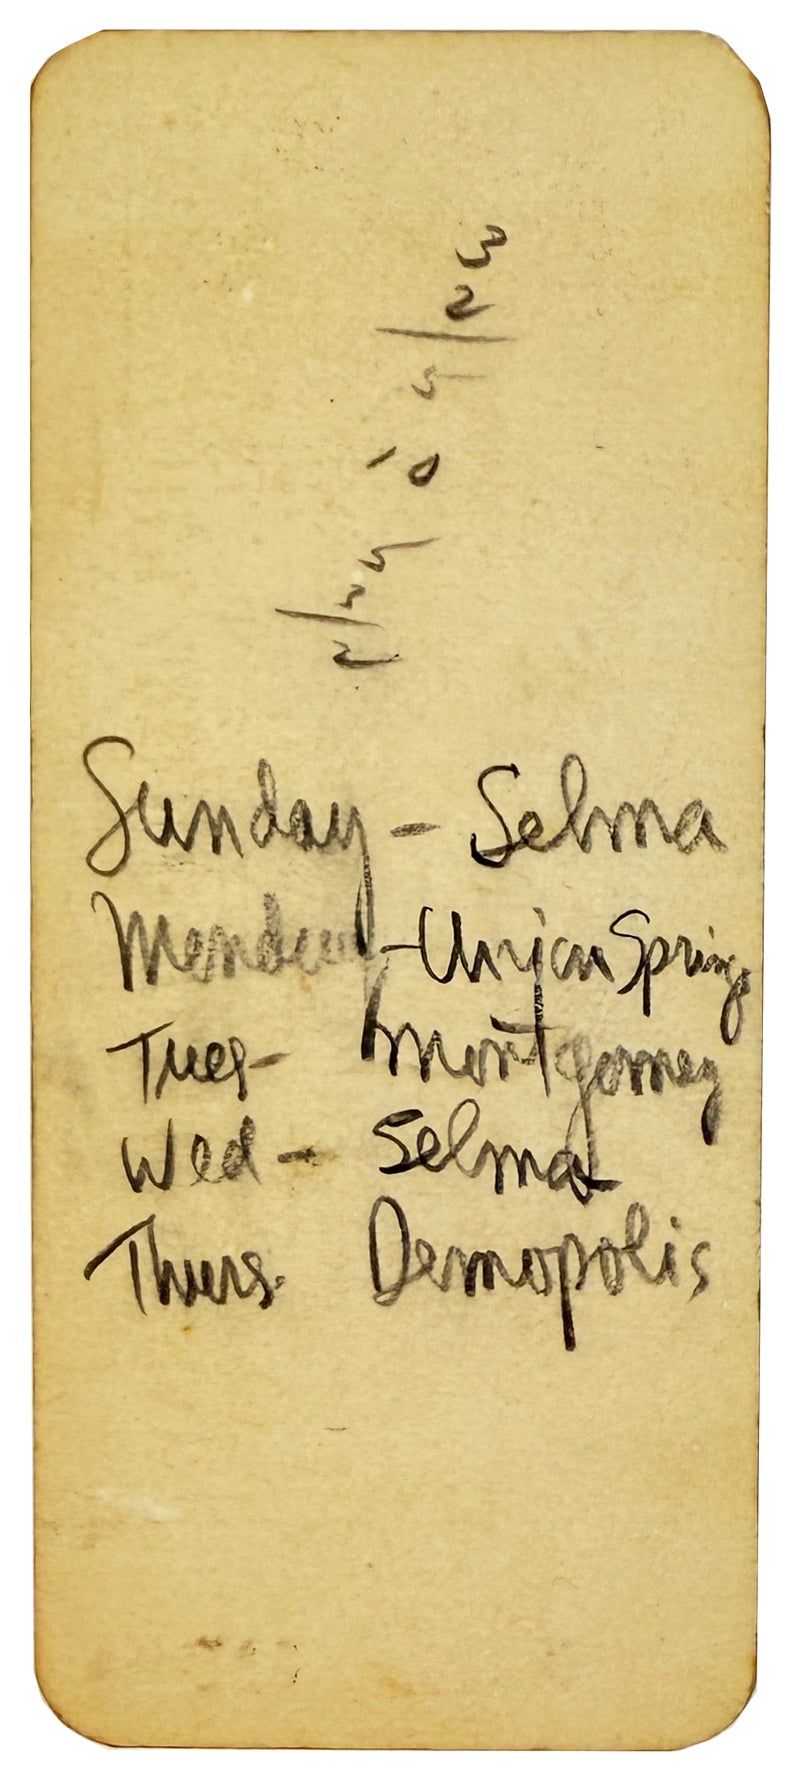 Sunday - Selma
Monday - Union Springs
Tues - Montgomery
Wed - Selma
Thurs. Demopolis